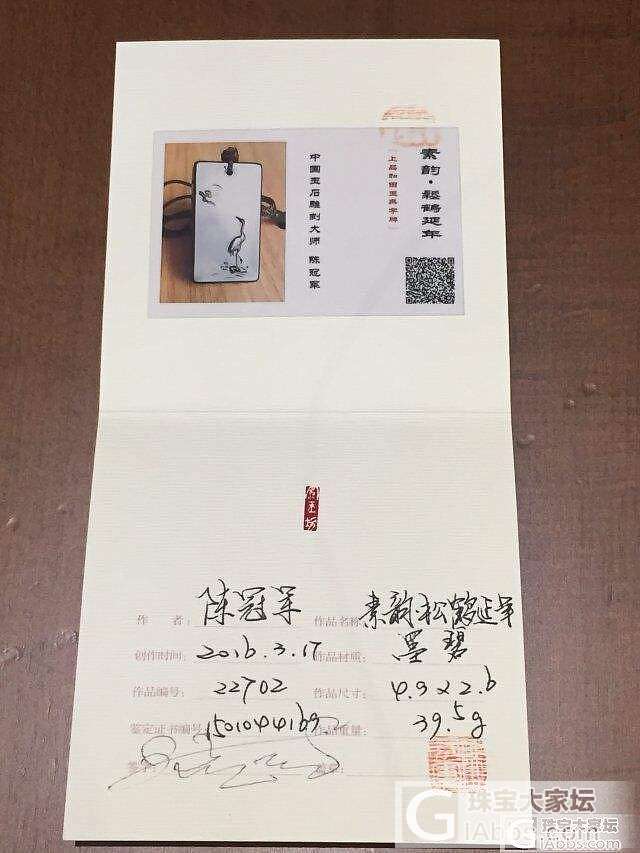 素韵·鬆鹤延年
中国玉石雕刻大师 陈冠军
作 者: 陈冠军
作品名称: 素韵·松鹤延年
创作时间: 2016.3.17
作品材质: 墨碧
作品编号: 22702
作品尺寸: 4.3×2.6
鉴定证书编号:
作品重量: 39.5g
珠宝大家坛
iAbbs.com
珠宝大家坛
iAbbs.com